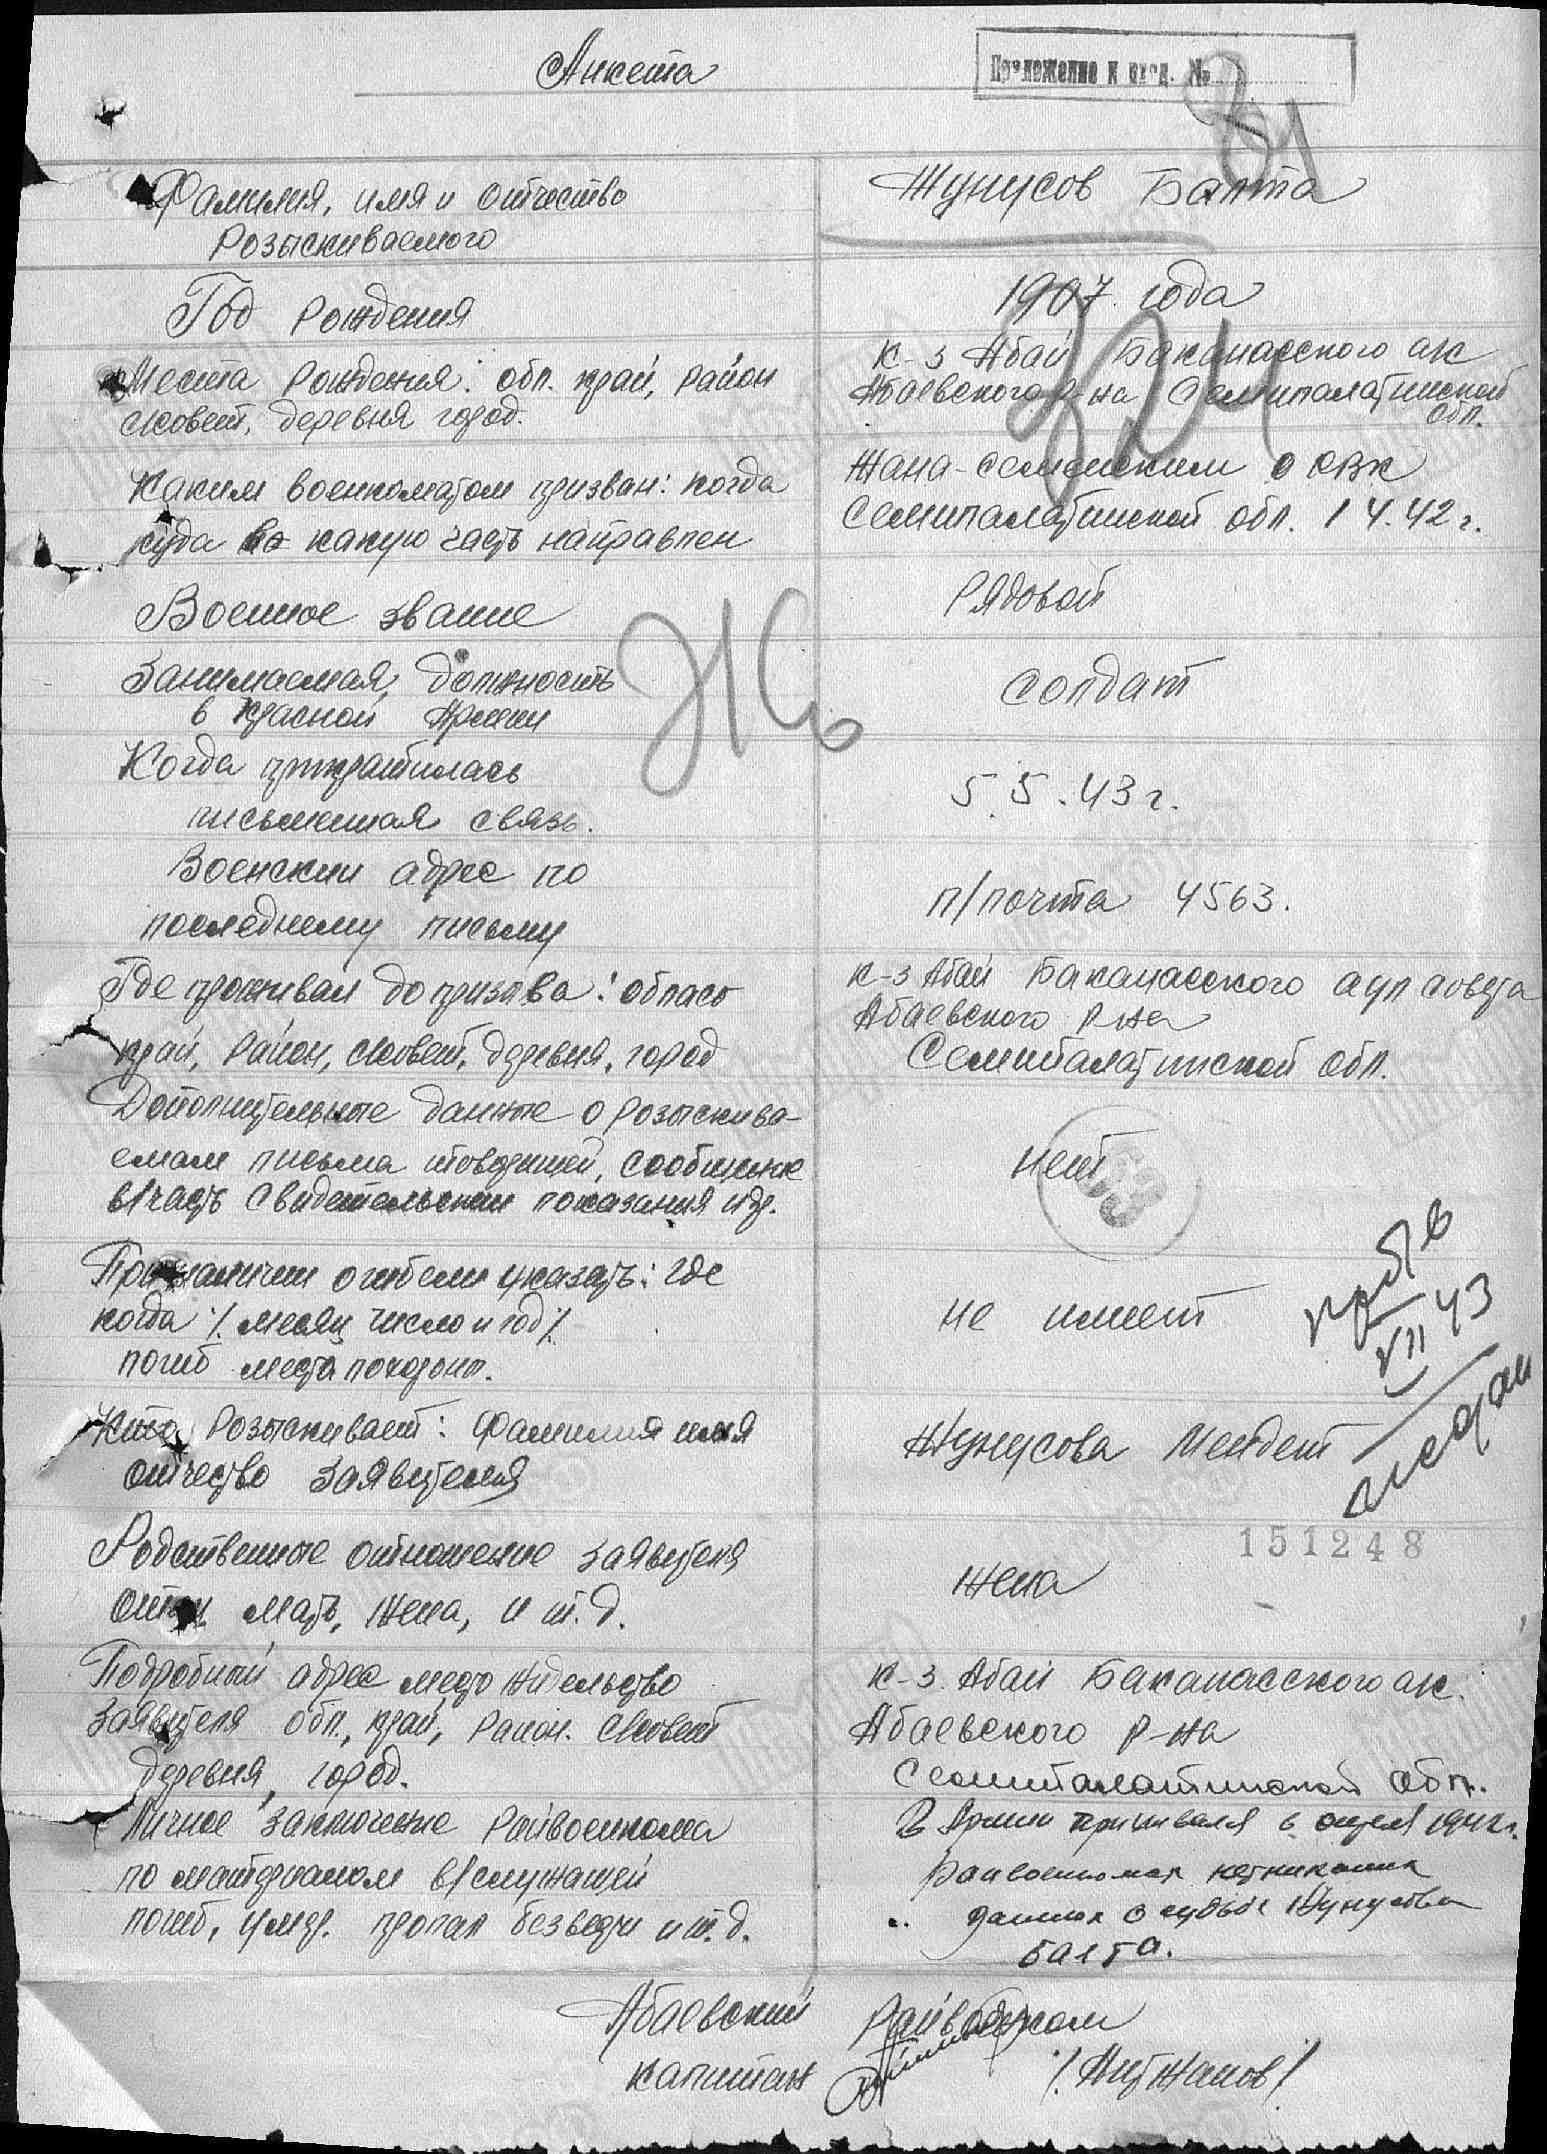 Анкета
Приложение к вход. №
81
Фамилия, имя и отчество
Розыскиваемого
Жунусов Балта
Год Рождения
1907 года
324
Места Рождения: обл. край, район
с/совет, деревня город.
к-з Абай Баканасского а/с
Абаевского р-на Семипалатинской
обл.
Каким военкоматом призван: когда
куда во какую часть направлен
Жана-семейским о РВК
Семипалатинской обл. 1 4. 42 г.
Военное звание
Рядовой
Занимаемая должность
в Красной Армии
солдат
Когда прикратилась
письменная связь.
5. 5. 43 г.
Военский адрес по
последнему письму
п/почта 4563.
Где проживал до призова: област
край, Район, с/совет, деревня, город
к-з Абай Баканасского аулсовета
Абаевского р-на
Семипалатинской обл.
Дополнительные данные о розыскива-
емом письма товарищей, сообщение
в/часть свидетельский показания и др.
нет
При наличии о гибели указать: где
когда /. месяц число и год /.
погиб места похорон.
не имеет
VII 43
Кто Розыскивает: Фамилия имя
отчество заявителя
Жунусова Мендет
151248
Родственные отношение заявителя
Отец мать, жена, и т. д.
жена
Подробный адрес место жидельство
заявителя обл., край, Район. с/совет
деревня, город.
к-з. Абай Баканасского а/с.
Абаевского р-на
Семипалатинской обл.
Личное заключение Райвоенкома
по материалом в/служащей
погиб, умер. пропал безвести и т. д.
В Армии призывался в апреля 1942 г.
Райвоенкомат нет никаких
данных о судьбе Жунусова
Балта.
Абаевский Райвоенком
капитан /. Айтжанов /.